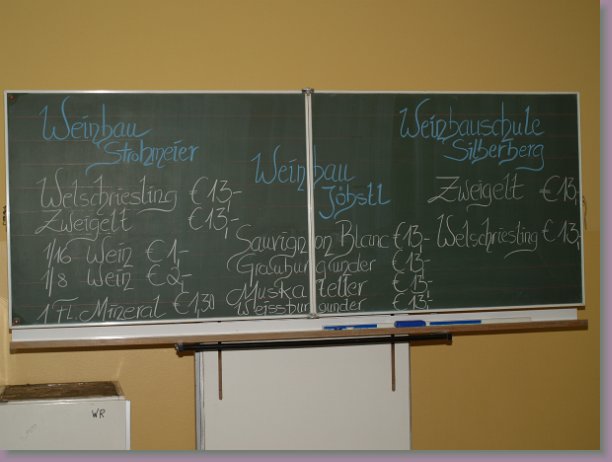 Weinbau
Strohmeier
Welschriesling €13,-
Zweigelt €13,-
1/16 Wein €1,-
1/8 Wein €2,-
1 Fl. Mineral €1,30
Weinbau
Jöbstl
Sauvignon Blanc €13,-
Grauburgunder €13,-
Muskateller €13,-
Weissburgunder €13,-
Weinbauschule
Silberberg
Zweigelt €13,-
Welschriesling €13,-
WR